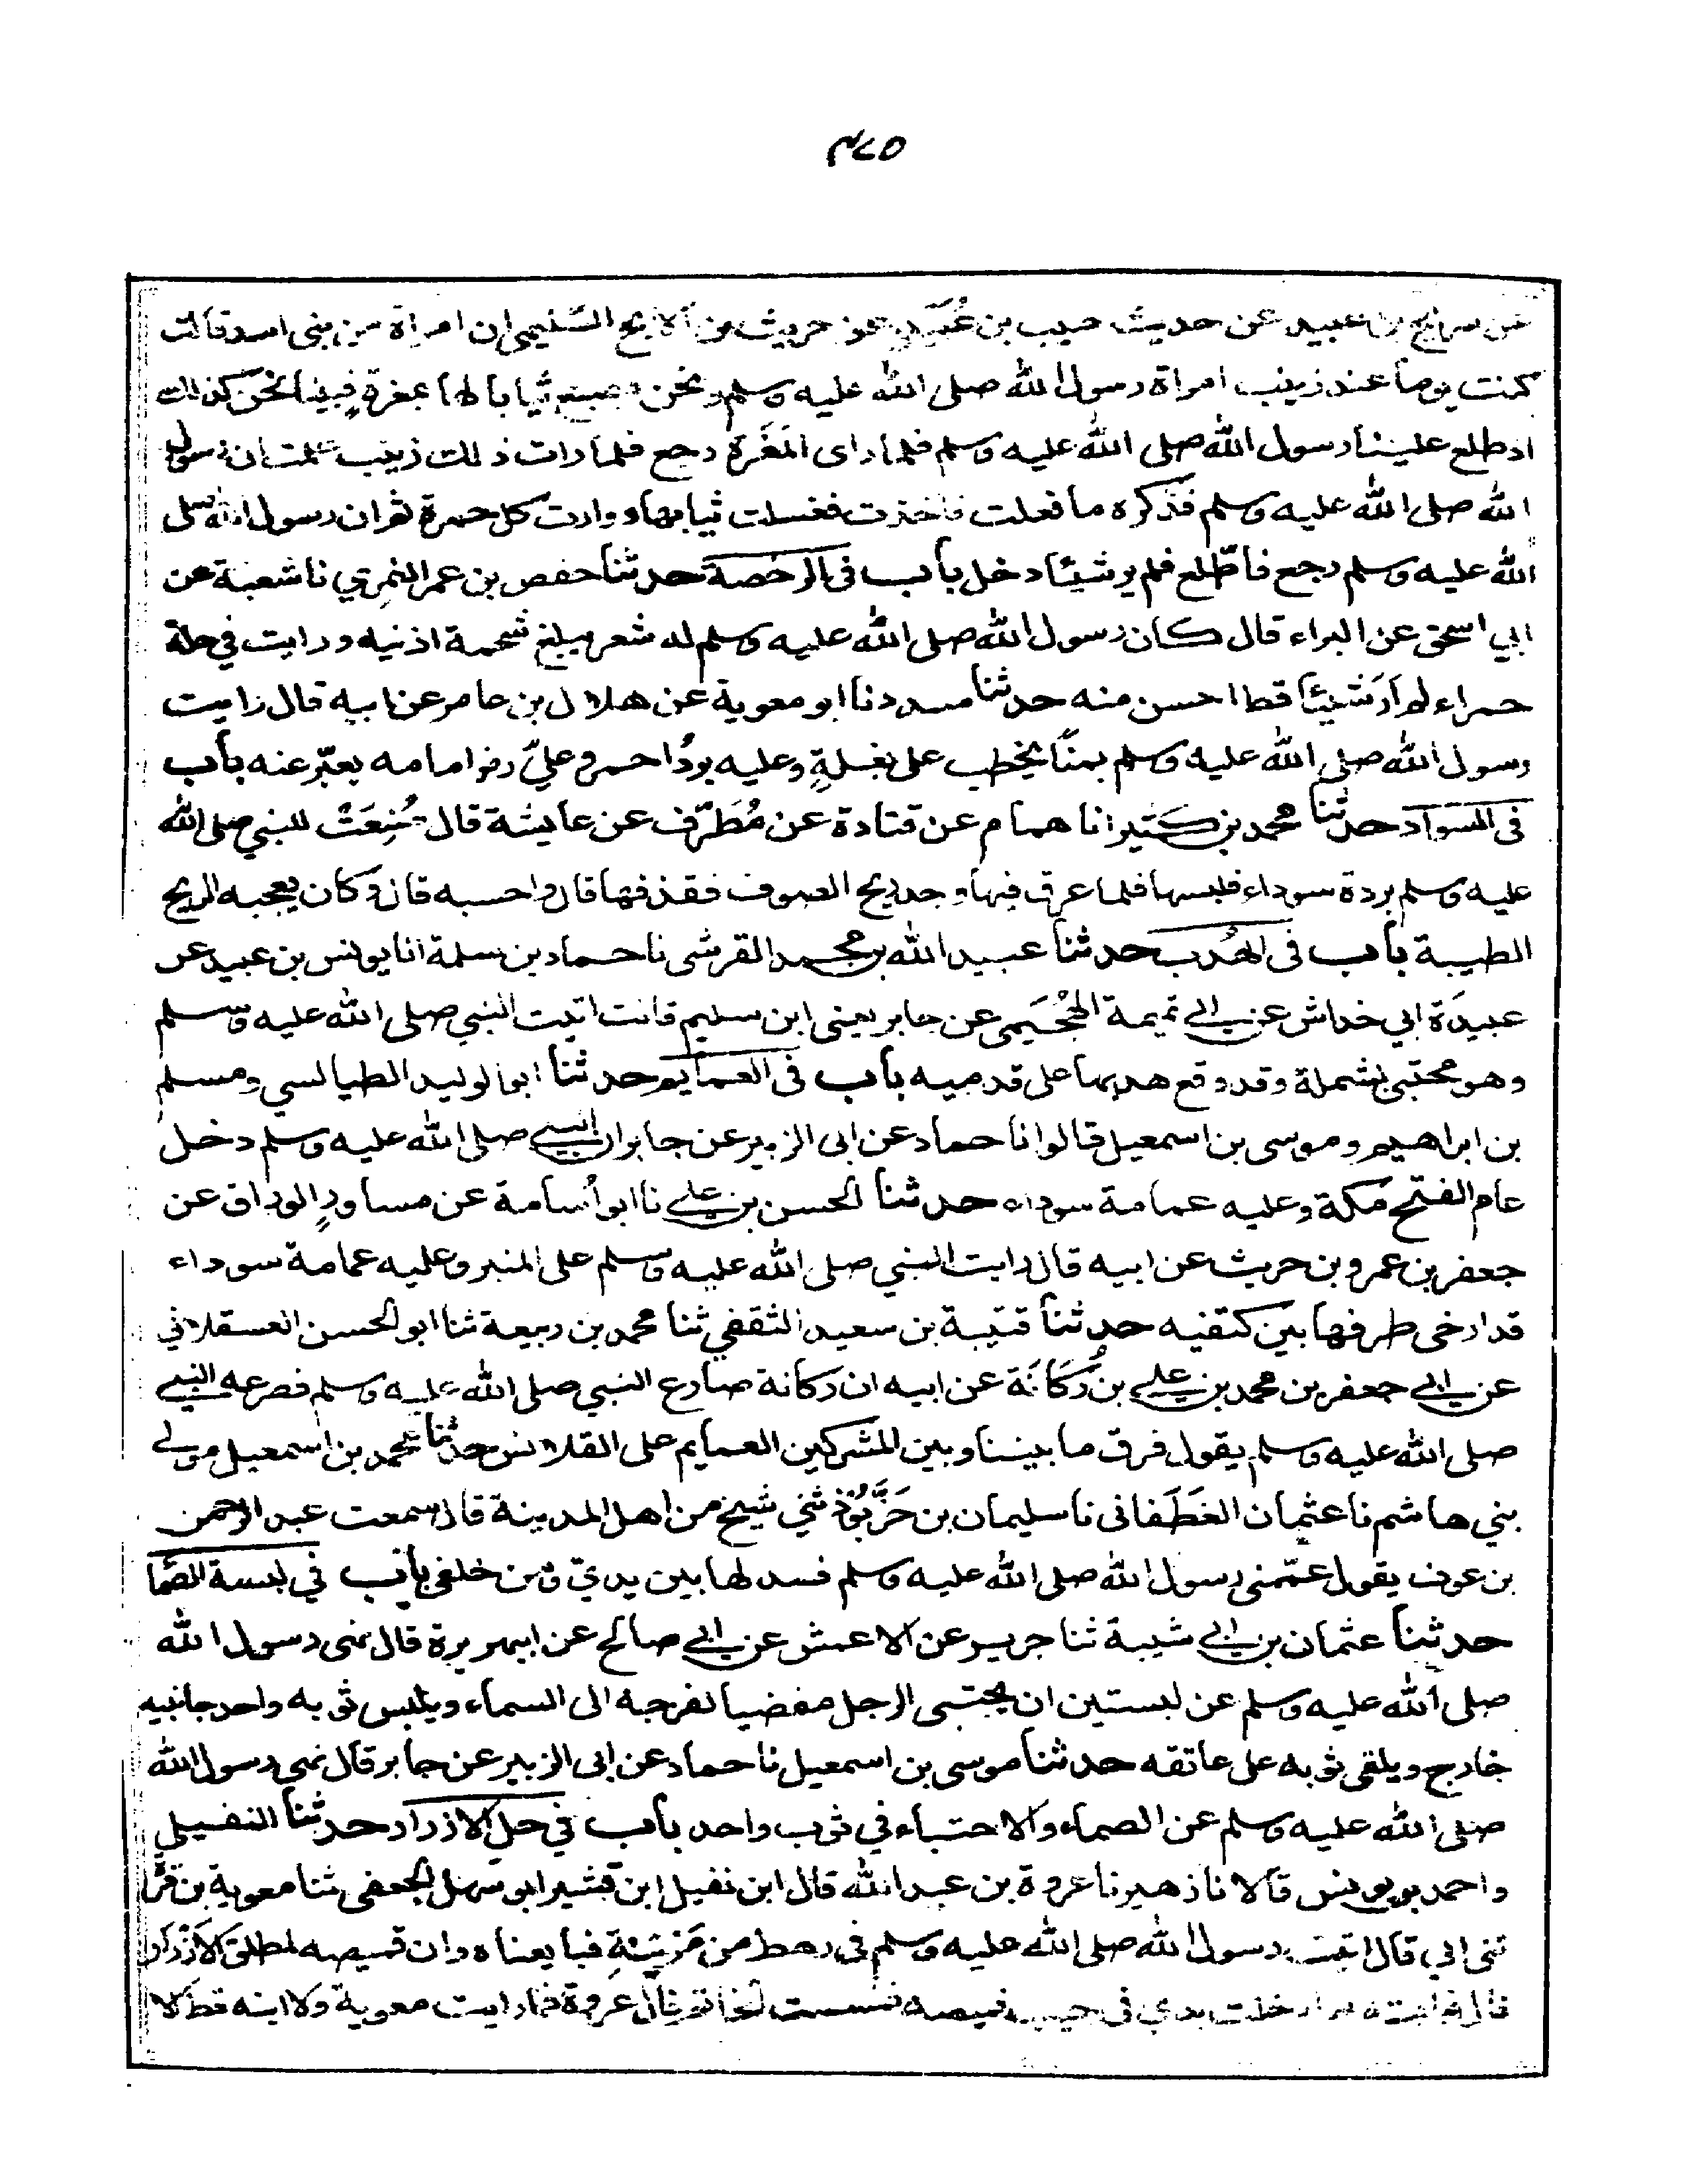 ٤٢٥
عن شريح بن عبيد عن حديث حبيب بن عُبَيدٍ عن حريث بن الابح السَليحي ان امراة من بني اسد قالت
كنت يوما عند زينب امراة رسول الله صلى الله عليه وسلم ونحن نصبغ ثيابا لها بمغرة فبينا نحن كذلك
اذ طلع علينا رسول الله صلى الله عليه وسلم فلما راى المَغَرة رجع فلما رات ذلك زينب علمت ان رسول
الله صلى الله عليه وسلم قد كره ما فعلت فاخذت فغسلت ثيابها ووارت كل حمرة ثم ان رسول الله صلى
الله عليه وسلم رجع فاطّلع فلم ير شيئا دخل باب في الرخصة حدثنا حفص بن عمر النمري نا شعبة عن
ابي اسحق عن البراء قال كان رسول الله صلى الله عليه وسلم له شعر يبلغ شحمة اذنيه ورايت في حلة
حمراء لم اَرَ شيئا قط احسن منه حدثنا مسدد نا ابو معوية عن هلال بن عامر عن ابيه قال رايت
رسول الله صلى الله عليه وسلم بمنًا يخطب على بغلةٍ وعليه بردُ احمر وعليّ رض امامه يعبّر عنه باب
في السواد حدثنا محمد بن كثير انا همام عن قتادة عن مُطَرّف عن عايشة قال صُنِعَتْ للنبي صلى الله
عليه وسلم بردة سوداء فلبسها فلما عرق فيها وجد ريح الصوف فقذفها قال واحسبه قال وكان يعجبه الريح
الطيبة باب في الهُدب حدثنا عبيد الله بن محمد القرشي نا حماد بن سلمة انا يونس بن عبيد عن
عبيدَة ابي خداش عن ابي تميمة الهُجَيمي عن جابر يعني ابن سليم قال اتيت النبي صلى الله عليه وسلم
وهو محتبي بشملة وقد وقع هدبها على قدميه باب في العمايم حدثنا ابو الوليد الطيالسي ومسلم
بن ابراهيم وموسى بن اسمعيل قالوا نا حماد عن ابى الزبير عن جابر ان النبي صلى الله عليه وسلم دخل
عام الفتح مكة وعليه عمامة سوداء حدثنا الحسن بن علي نا ابو اُسامة عن مساورٍ الوراق عن
جعفر بن عمرو بن حريث عن ابيه قال رايت النبي صلى الله عليه وسلم على المنبر وعليه عمامة سوداء
قد ارخى طرفها بين كتفيه حدثنا قتيبة بن سعيد الثقفي ثنا محمد بن ربيعة ثنا ابو الحسن العسقلاني
عن ابي جعفر بن محمد بن علي بن رُكَانَة عن ابيه ان ركانة صارع النبي صلى الله عليه وسلم فصرعه النبي
صلى الله عليه وسلم يقول فرق ما بيننا وبين المشركين العمايم على القلانس حدثنا محمد بن اسمعيل مولى
بني هاشم نا عثمان الغَطَفانى نا سليمان بن خَرَّبُوْذ ثني شيخ من اهل المدينة قال سمعت عبد الرحمن
بن عوف يقول عمّمنى رسول الله صلى الله عليه وسلم فسدلها بين يديّ ومن خلفي باب في لبسة الصما
حدثنا عثمان بن ابي شيبة ثنا جرير عن الاعمش عن ابي صالح عن ابيهريرة قال نهى رسول الله
صلى الله عليه وسلم عن لبستين ان يحتبى الرجل مفضيا بفرجه الى السماء ويلبس ثوبه واحد جانبيه
خارج ويلقى ثوبه على عاتقه حدثنا موسى بن اسمعيل نا حماد عن ابى الزبير عن جابر قال نهى رسول الله
صلى الله عليه وسلم عن الصماء والاحتباء في ثوب واحد باب في حل الازرار حدثنا النفيلى
واحمد بن يونس قالا نا زهير نا عروة بن عبد الله قال ابن نفيل ابن قشير ابو سهل الجعفي ثنا معوية بن قرّة
ثنى ابي قال اتيت رسول الله صلى الله عليه وسلم في رهط من مُزَينةِ فبايعناه وان قميصه لمطلق الاَزْرار
قال فبايعته ثم ادخلت يدي في جيب قميصه فمسست الخاتم قال عروة فما رايت معوية ولا ابنه قط الا